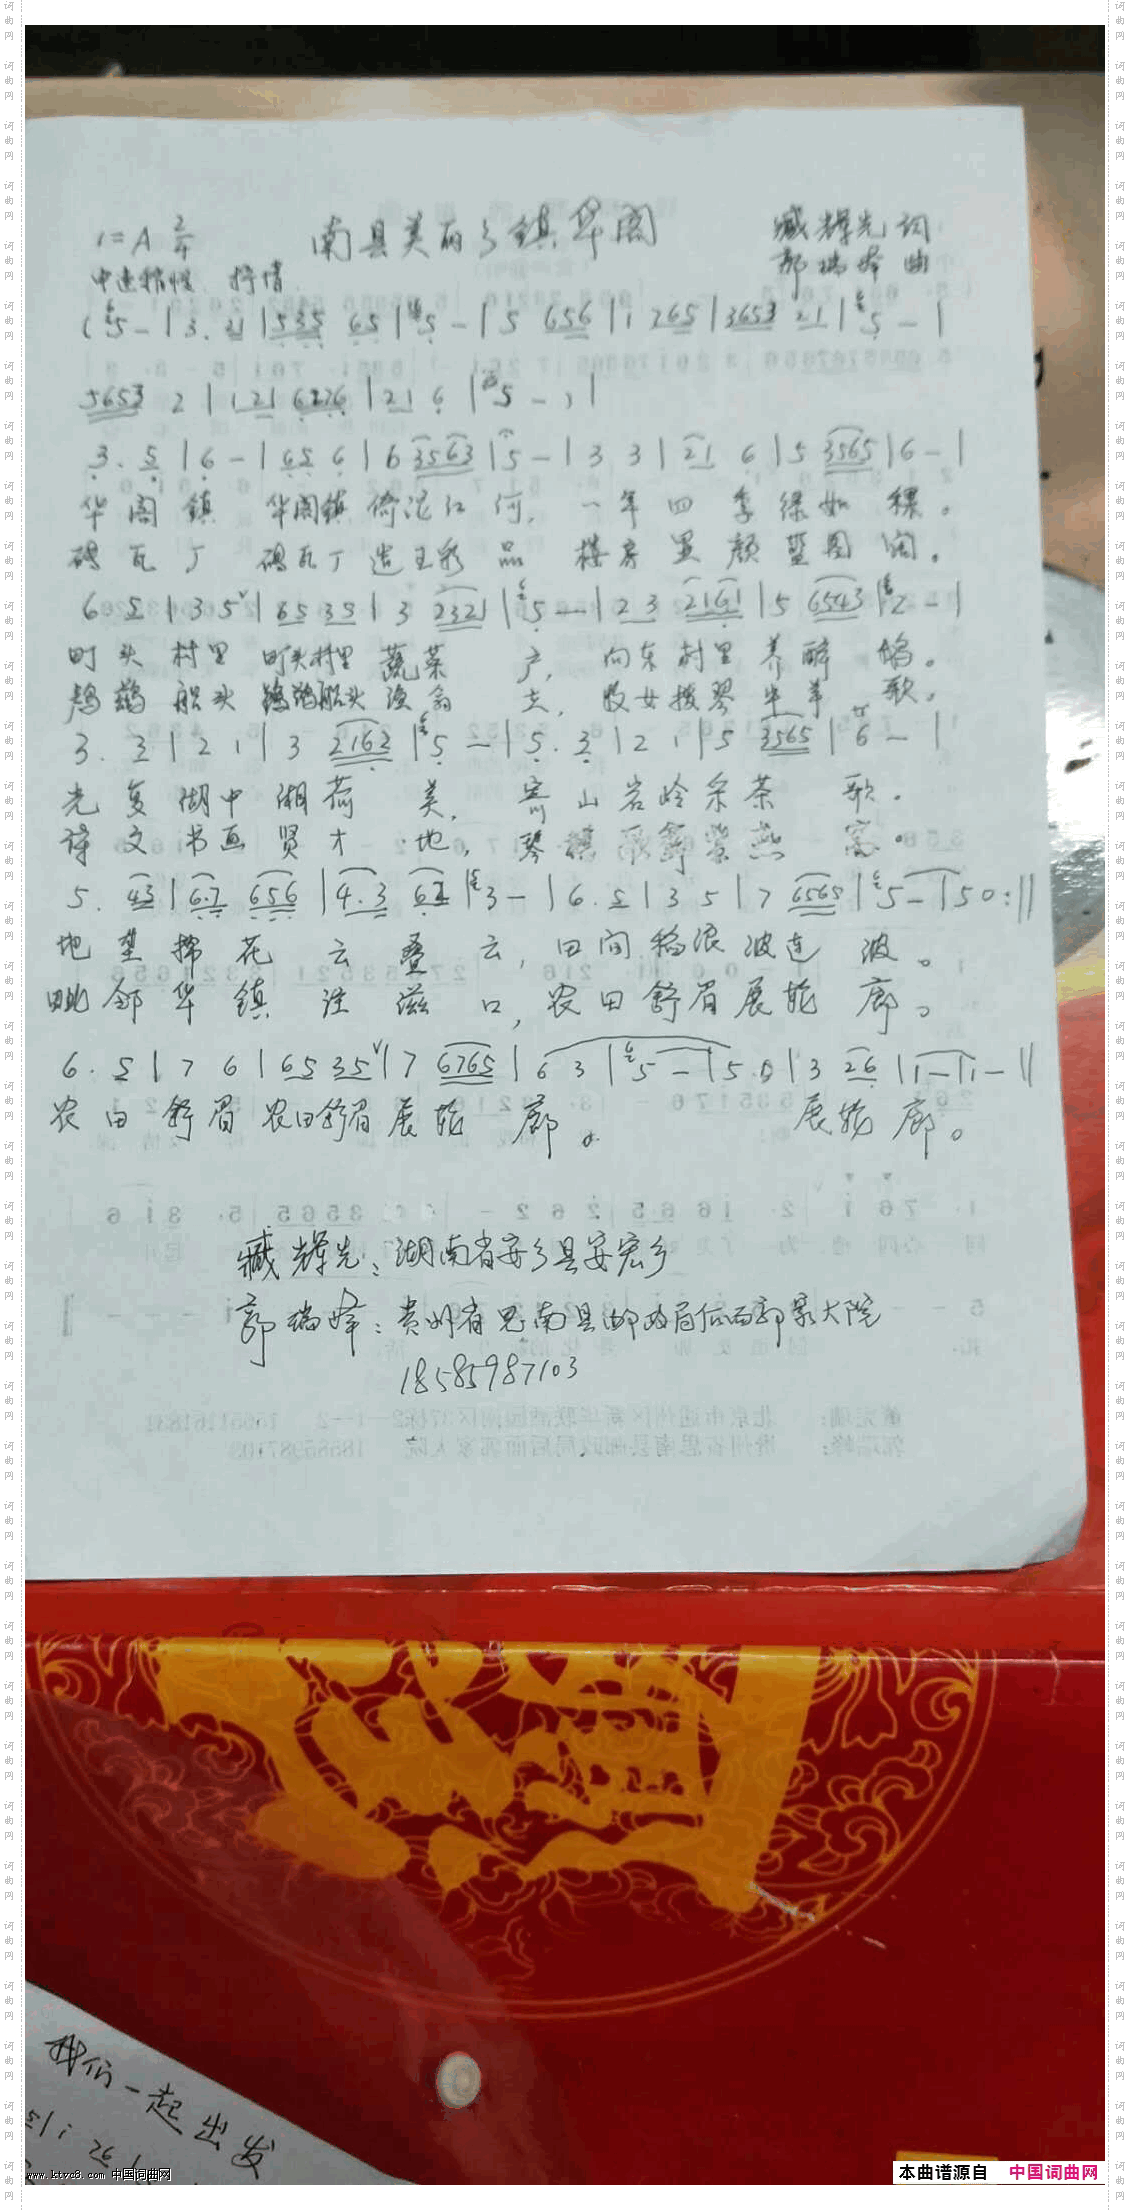 1=A 2/4 南县美丽乡镇华阁 臧辉先 词
中速稍慢 抒情 郭瑞峰 曲
(5 - | 3. 21 | 535 65 | 5 - | 5 656 | i 265 | 3653 21 | 5 - |
5653 2 | 1 121 6226 | 21 6 | 5 - ) |
3. 5 | 6 - | 65 6 | 6 3563 | 5 - | 3 3 | 21 6 | 5 3565 | 6 - |
华阁镇 华阁镇倚 江河, 一年四季绿如 。
砖瓦厂 砖瓦厂造 品 楼房 颜 阔。
6 5 | 3 5 | 65 35 | 3 2321 | 5 - | 2 3 2161 | 5 6543 | 2 - |
町头村里 町头村里蔬菜 产, 向东村里养 。
鸬鹚船头 鸬鹚船头渔 去, 牧女拨琴 羊歌。
3. 3 | 2 1 | 3 2162 | 5 - | 5. 3 | 2 1 | 5 3565 | 6 - |
光复湖中湘荷美, 寄山岩岭采茶歌.
诗文书画贤才地, 琴棋 紫燕窝。
5. 43 | 6.2 656 | 4.3 62 | 3 - | 6. 5 | 3 5 | 7 6565 | 5 - | 5 0 :||
地 棉花云叠云, 田间稻浪波连波。
毗邻华镇注滋口, 农田舒眉展 廊。
6. 5 | 7 6 | 65 35 | 7 6765 | 6 3 | 5 - | 5. 0 | 3 26 | 1 - | 1 - ||
农田舒眉 农田舒眉展 廊。 展 廊。
臧辉先: 湖南省安乡县安宏乡
郭瑞峰: 贵州省思南县邮政局后面郭家大院
18585987103
我们一起出发
www.ktvc8.com 中国词曲网
本曲谱源自 中国词曲网